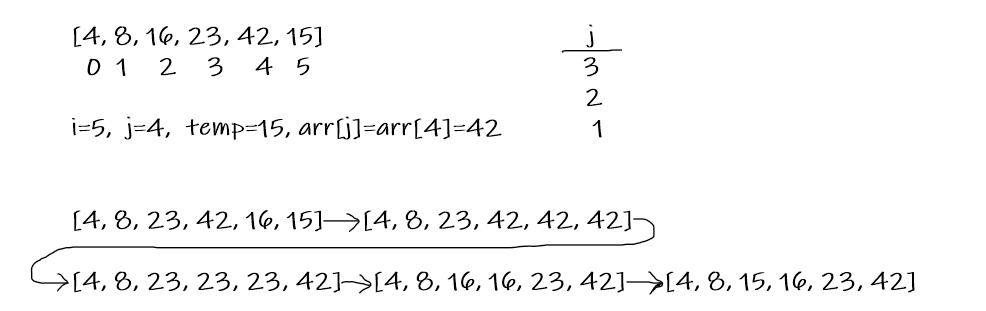 [4, 8, 16, 23, 42, 15]
0 1 2 3 4 5
i=5, j=4, temp=15, arr[j]=arr[4]=42
j
3
2
1
[4, 8, 23, 42, 16, 15]→[4, 8, 23, 42, 42, 42]
→[4, 8, 23, 23, 23, 42]→[4, 8, 16, 16, 23, 42]→[4, 8, 15, 16, 23, 42]